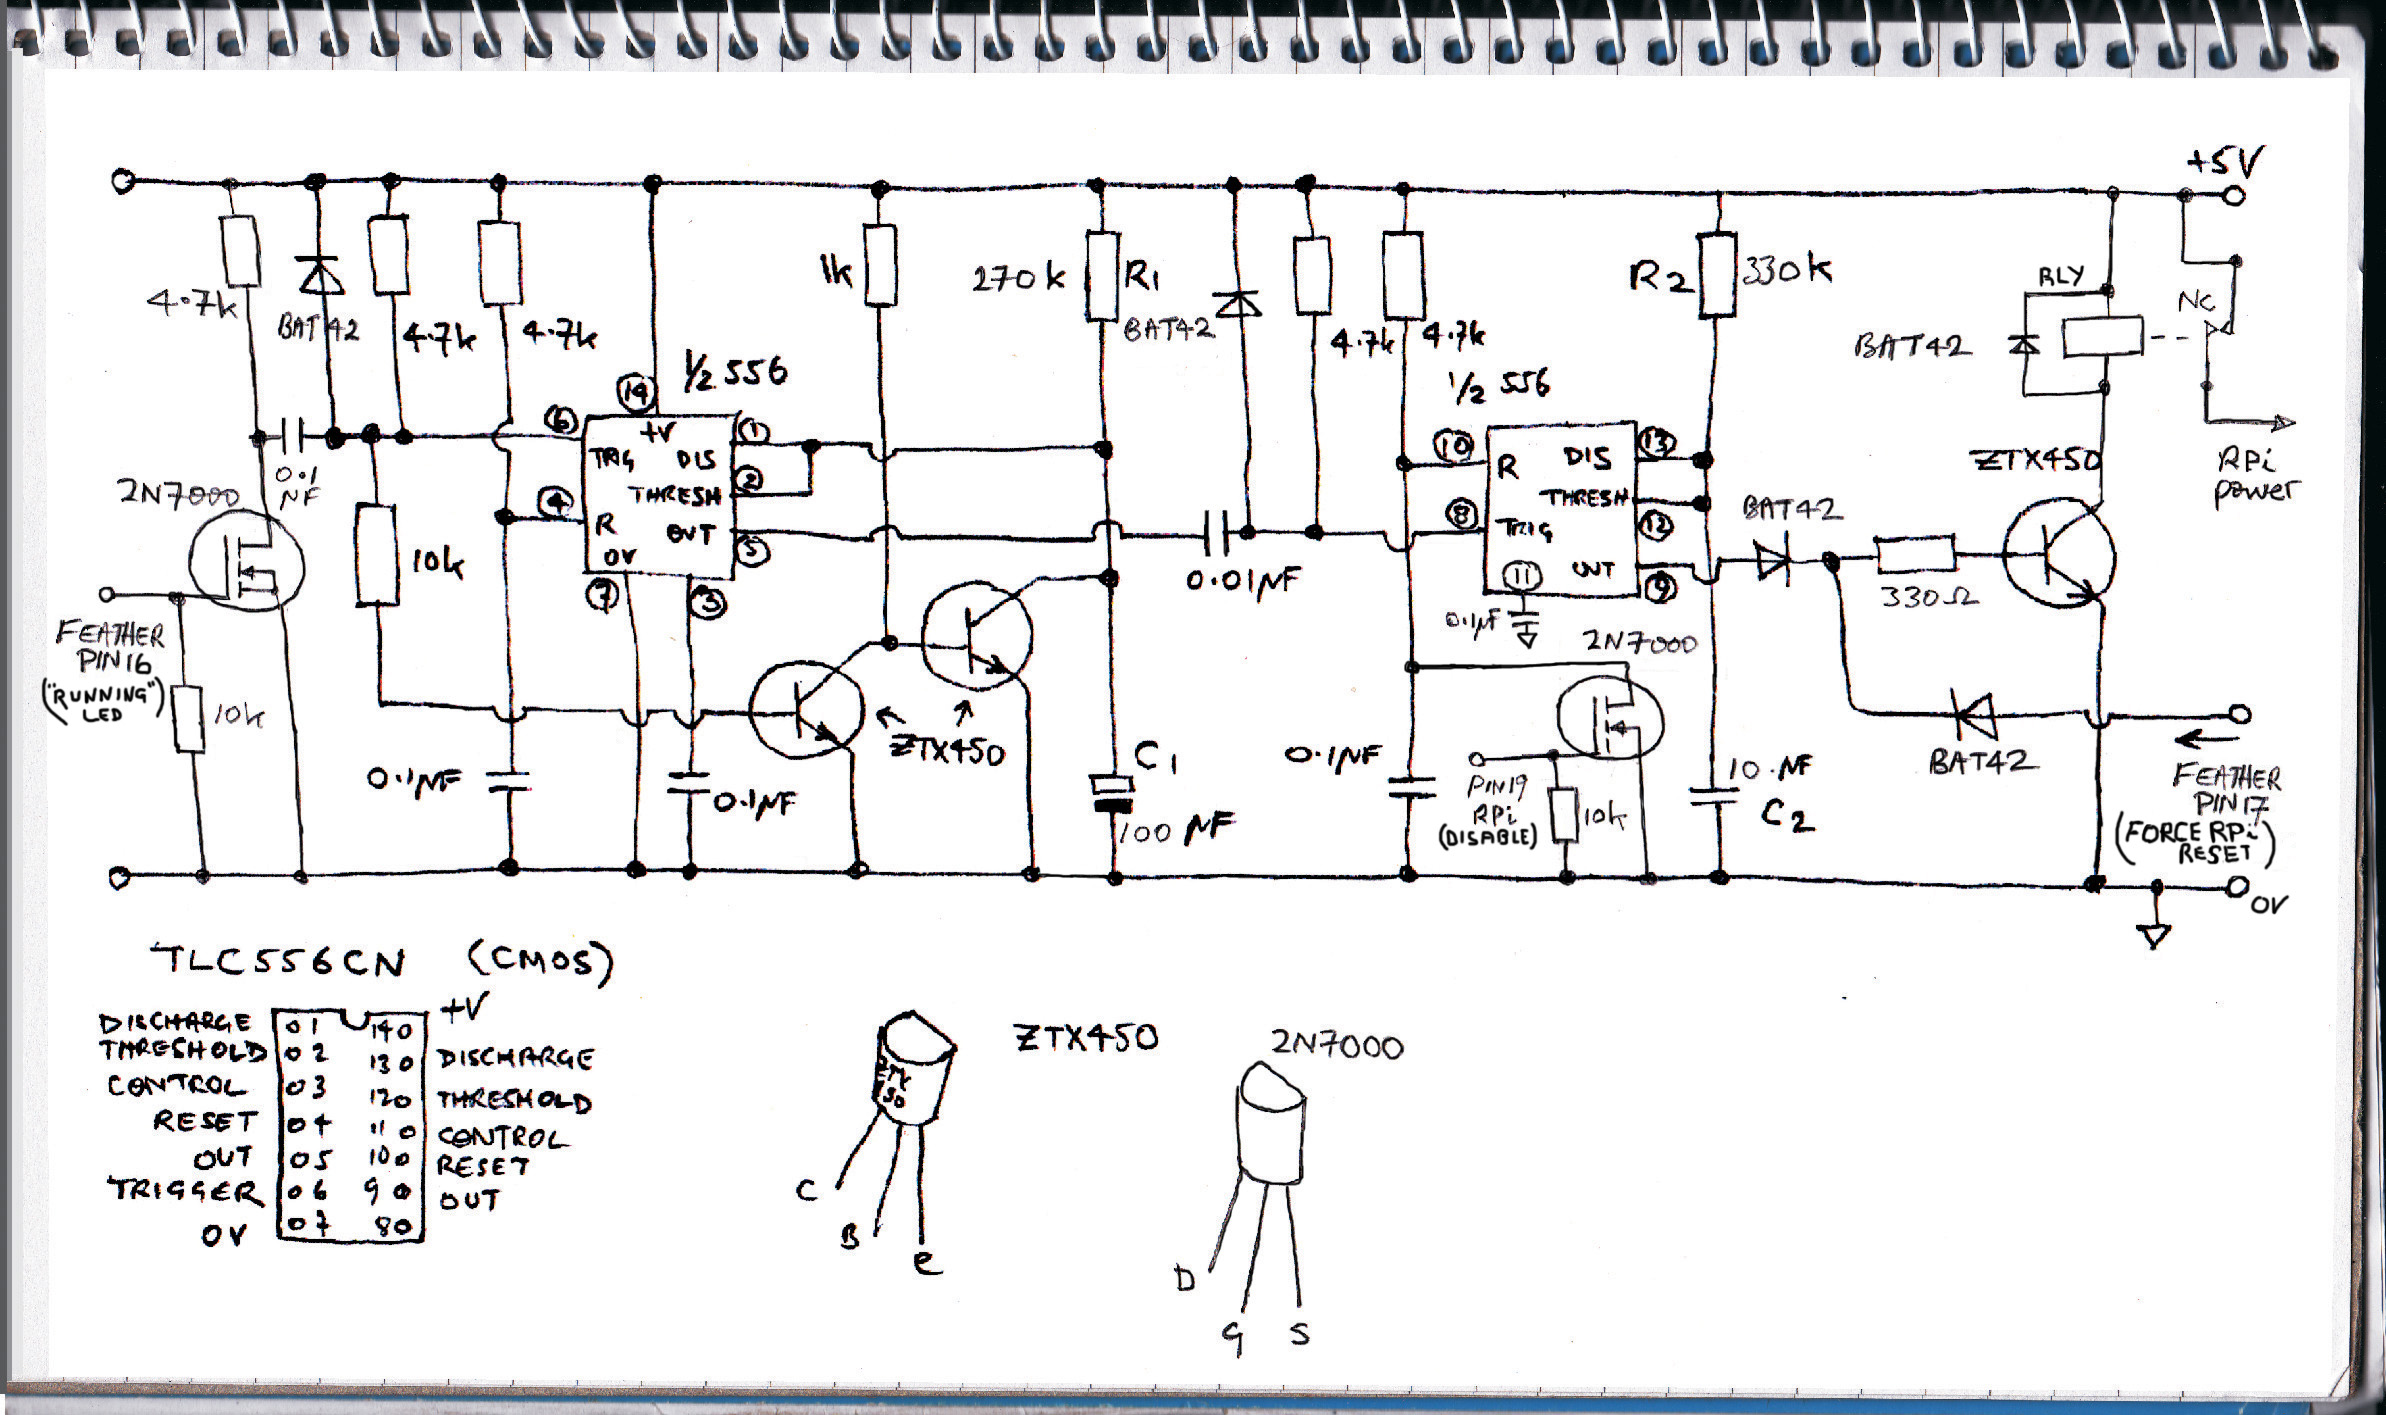 +5V
4.7k
BAT42
4.7k
4.7k
1k
270k
R1
BAT42
4.7k
4.7k
R2
330k
RLY
NC
BAT42
RPi
power
1/2 556
14
6
+V
TRIG
DIS
1
THRESH
2
4
R
OUT
5
0V
7
3
1/2 556
10
R
DIS
13
THRESH
12
8
TRIG
11
OUT
9
0.1µF
BAT42
330Ω
ZTX450
0.1
µF
2N7000
10k
FEATHER
PIN16
("RUNNING"
LED)
10k
0.01µF
2N7000
ZTX450
0.1µF
0.1µF
C1
100µF
0.1µF
PIN19
RPi
(DISABLE)
10k
10µF
C2
BAT42
FEATHER
PIN17
(FORCE RPi
RESET)
0V
TLC556CN (CMOS)
+V
DISCHARGE 01 140
THRESHOLD 02 130 DISCHARGE
CONTROL 03 120 THRESHOLD
RESET 04 110 CONTROL
OUT 05 100 RESET
TRIGGER 06 90 OUT
0V 07 80
ZTX450
ZTX
450
C
B
e
2N7000
D
G
S